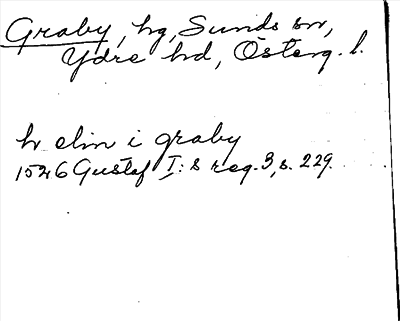 Graby, hg, Sunds sn,
Ydre hd, Österg. l.
h elin i graby
1526 Gustaf I: s reg. 3, s. 229.